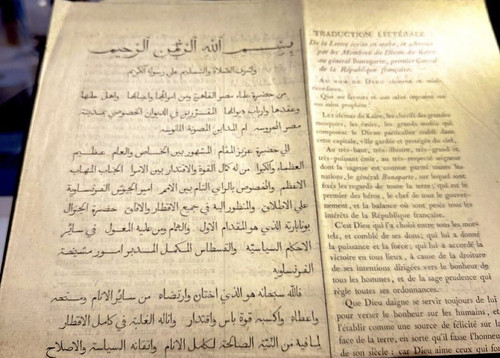 بسم الله الرحمن الرحيم
واشرف الصلاة والتسليم على رسوله الكريم
من حضرة علماء مصر القاهرة ومن امرائها واعيانها واهل حلها
وعقدها وارباب ديوانها المخصوص بمدينة
مصر المحروسه ام المداين المصونة المانوسه
الى حضرة عزيز المقام المشهور بين الخاص والعام عظيم
العظماء من له كمال القوة والاقتدار بين الامرا الجناب المهاب
الاعظم والمخصوص بالراى التام بين الامم امير الجيوش الفرنساوية
على الاطلاق والمنظور اليه في جميع الاقطار والافاق حضرة الجنرال
بونابارته الذي هو المقدام الاول والهمام ومن عليه المعول في ساير
الاحكام السياسيّة والقسطاس المكمل المدبر امور مشيخة
الفرنساويه
فالله سبحانه هو الذي اختان وارتضاه من سائر الانام ومنحه
واعطاه واكسبه قوة باس واقتدار واناله الغلبة في كامل الاقطار
لما فيه من النيّة الصالحة لكامل الانام واتقانه السياسة والاصلاح
TRADUCTION LITTÉRALE
De la Lettre écrite en arabe, et adressée
par les Membres du Divan du Kaire
au général Bonaparte, premier Consul
de la République française.
AU NOM DE DIEU clément et misé-
ricordieux.
Que ses faveurs et son salut reposent sur
son saint prophète!
LES ulémas du Kaire, les chérifs des grandes
mosquées, les émirs, les grands mottis qui
composent le Divan particulier établi dans
cette capitale, ville gardée et protégée du ciel,
Au très-haut, très-illustre, très-grand et
très-puissant émir, au très-respecté seigneur
dont la sagesse est connue parmi toutes les
nations, le général Bonaparte, sur lequel sont
fixés les regards de toute la terre; qui est le
premier des héros, le chef de tout le gouver-
nement, et la balance où sont pesés tous les
intérêts de la République française.
C'est Dieu qui l'a choisi entre tous les mor-
tels, et comblé de ses dons; qui lui a donné
la puissance et la force; qui lui a accordé la
victoire en tous lieux, à cause de la droiture
de ses intentions dirigées vers le bonheur de
tous les hommes, et de la sage prudence qui
règle toutes ses ordonnances.
Que Dieu daigne se servir toujours de lui
pour verser le bonheur sur les humains, et
l'établir comme une source de félicité sur la
face de la terre, en sorte qu'il fasse l'honneur
de son siècle: car Dieu aime ceux qui font